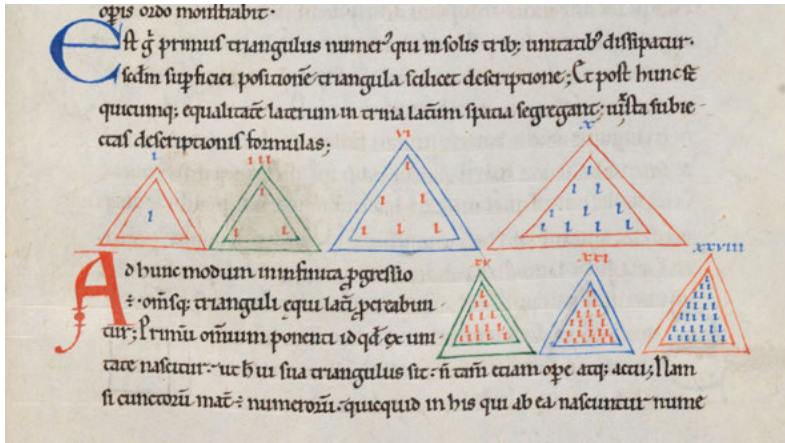 opis ordo monstrabit.
Est g̃ primus triangulus numer᷒ qui in solis trib; unitatib᷒ dissipatur.
scdm supficiei positionē triangula scilicet descriptione; Et post hunc st̄
quicumq; equalitatē laterum in trina lat̄um spatia segregant; ut̃ sta subie-
ctas descriptionis formulas;
ı ııı vı x
A d hunc modum in infinita ꝓgressio
xv xxı xxvııı
ē. omsq; trianguli equi lati ꝓcreabun
tur; Primū omnium ponenti id qd̃ ex uni
tate nascitur. ut h̄ ui sua triangulus sit. n̄ tam̄ etiam ope atq; actu; Nam
si cunctorū mat̃ ē numerorū. quicquid in his qui ab ea nascuntur nume